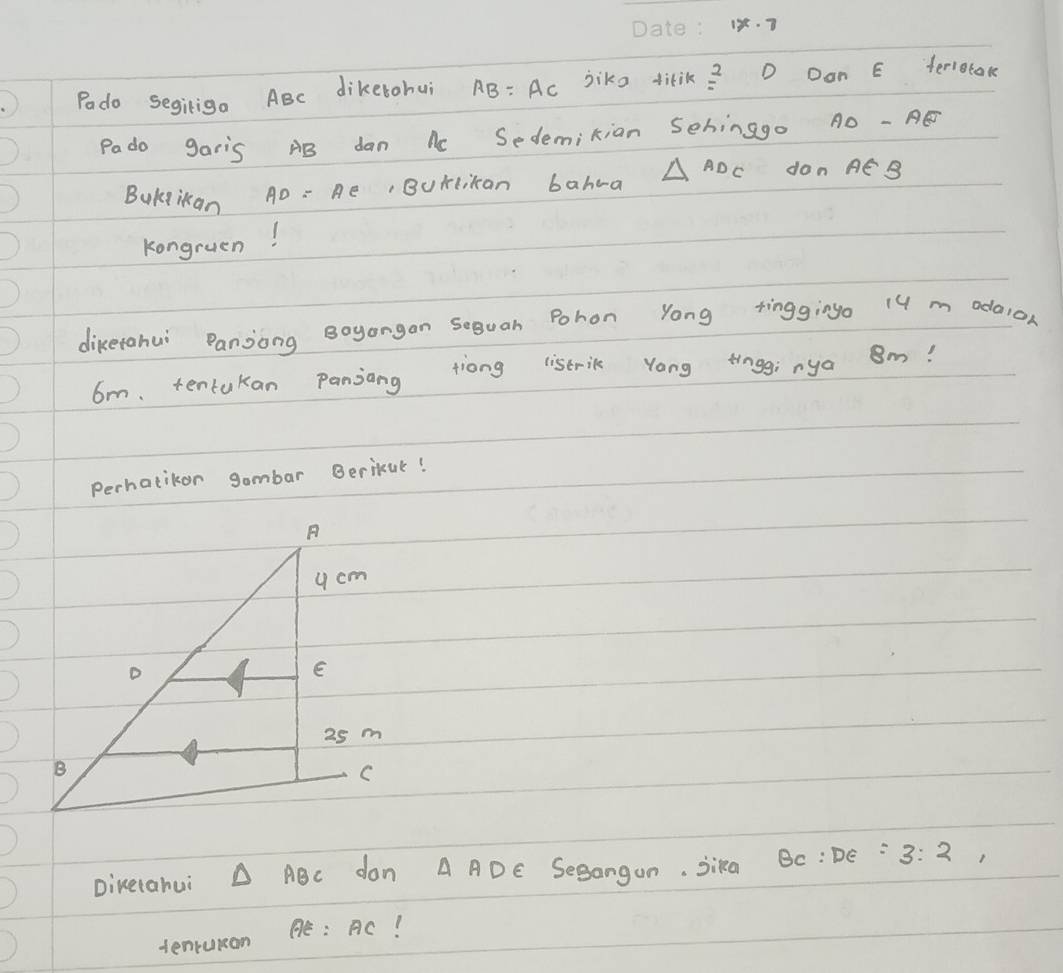 Date : IX.7
Pada segitiga ABC diketahui AB = AC jika titik² D Dan E terletak
Pada garis AB dan AC Sedemikian Sehingga AD - AE
Buktikan AD = AE, Buktikan bahwa △ ADC dan AEB
Kongruen !
diketahui Panjang Bayangan seBuah Pohon Yang tingginya 14 m adalah
6m. tentukan Panjang tiang listrik Yang tingginya 8m !
Perhatikan gambar Berikut !
A
4 cm
D
E
25 m
B
C
Diketahui △ ABC dan △ ADE SeBangun. Jika BC : DE = 3 : 2 ,
tentukan AE : AC !